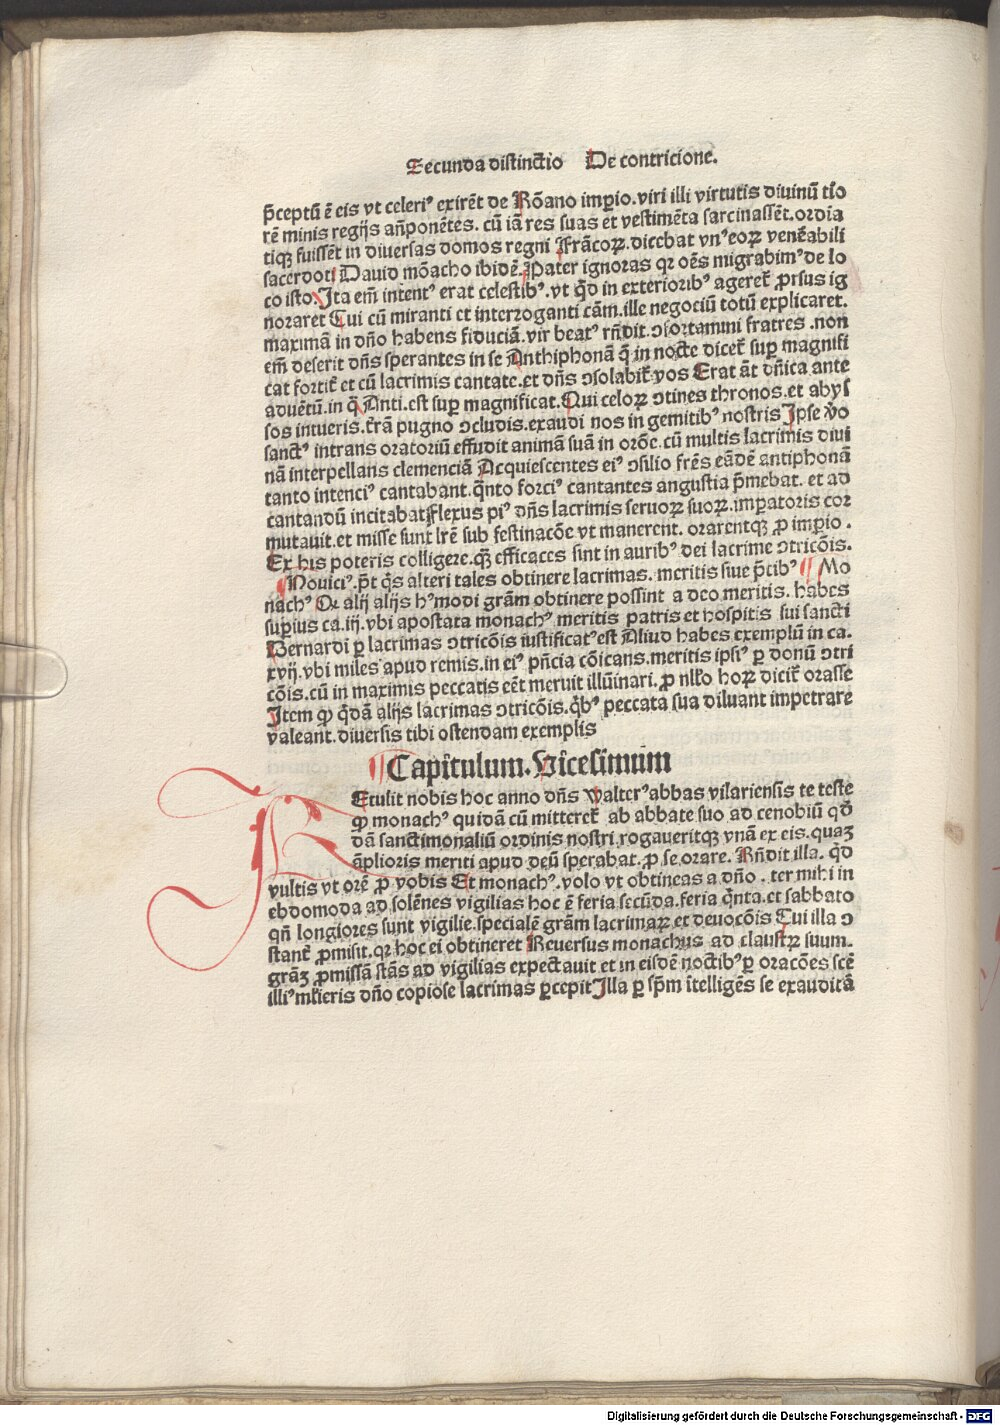 Secunda distinctio De contricione.
p̄ceptū ē eis vt celeri⁹ exirēt de Rōano imꝑio.viri illi virtutis diuinū tīo
rē minis regijs añponētes. cū iā res suas et vestimēta sarcinassēt.ordīa
tiqꝫ fuissēt in diuersas domos regni Frācoꝝ.dicebat vn⁹eoꝝ venēabili
sacerdoti Dauid mōacho ibidē.Pater ignoras qr oēs migrabim⁹de lo
co isto.Ita em̄ intent⁹ erat celestib⁹.vt q̄d in exteriorib⁹ ageret᷑ ꝓrsus ig
noraret Cui cū miranti et interroganti cām.ille negociū totū explicaret.
maximā in dn̄o habens fiduciā.vir beat⁹ rn̄dit.ↄfortamini fratres .non
em̄ deserit dn̄s sperantes in se Anthiphonā q̄ in nocte dicet᷑ suꝑ magnifi
cat fortit᷑ et cū lacrimis cantate.et dn̄s ↄsolabit᷑ vos Erat āt dn̄ica ante
aduētū.in q̄ Anti.est suꝑ magnificat.Qui celoꝝ ↄtines thronos.et abys
sos intueris.t᷑rā pugno ↄcludis.exaudi nos in gemitib⁹ nostris Ipse v̄o
sanct⁹ intrans oratoriū effudit animā suā in orōe.cū multis lacrimis diui
nā interpellans clemenciā Acquiescentes ei⁹ ↄsilio frēs eādē antiphonā
tanto intenci⁹ cantabant.q̄nto forci⁹ cantantes angustia p̄mebat. et ad
cantandū incitabat Flexus pi⁹ dn̄s lacrimis seruoꝝ suoꝝ.imꝑatoris cor
mutauit.et misse sunt lr̄e sub festinacōe vt manerent. orarentqꝫ ꝓ imꝑio .
Ex his poteris colligere.qꝫ efficaces sint in aurib⁹ dei lacrime ↄtricōis.
¶Nouici⁹.p̄t q̄s alteri tales obtinere lacrimas. meritis siue p̄cib⁹ ¶Mo
nach⁹ Qꝛ alij alijs h⁹modi grām obtinere possint a deo meritis. habes
suꝑius ca.iij.vbi apostata monach⁹ meritis patris et hospitis sui sancti
Bernardi ꝑ lacrimas ↄtricōis iustificat⁹est Aliud habes exemplū in ca.
xvij.vbi miles apud remis.in ei⁹ p̄ncia cōicans.meritis ipsi⁹ ꝑ donū ↄtri
cōis.cū in maximis peccatis eēt meruit illūinari.ꝓ nllo hoꝝ dicit᷑ orasse
Item ꝙ q̄dā alijs lacrimas ↄtricōis.q̄b⁹ peccata sua diluant impetrare
valeant.diuersis tibi ostendam exemplis
¶Capitulum.Vicesimum
REtulit nobis hoc anno dn̄s Walter⁹abbas vilariensis te teste
ꝙ monach⁹ quidā cū mitteret᷑ ab abbate suo ad cenobiū qd̄
dā sanctimonaliū ordinis nostri.rogaueritqꝫ vnā ex eis.quaꝫ
āplioris meriti apud deū sperabat.ꝓ se.orare. Rn̄dit illa. qd̄
vultis vt orē ꝓ vobis Et monach⁹.volo vt obtineas a dn̄o . ter mihi in
ebdomoda ad solēnes vigilias hoc ē feria secūda.feria q̄nta.et sabbato
qn̄ longiores sunt vigilie.specialē grām lacrimaꝝ et deuocōis Cui illa ↄ
stant᷑ ꝓmisit.qr hoc ei obtineret Reuersus monachus ad claustꝝ suum.
grāꝫ ꝓmissā stās ad vigilias expectauit et in eisdē noctib⁹ ꝑ oracōes scē
illi⁹ ml̄ieris dn̄o copiose lacrimas ꝑcepit Illa ꝑ sp̄m ītelligēs se exauditā
Digitalisierung gefördert durch die Deutsche Forschungsgemeinschaft - DFG